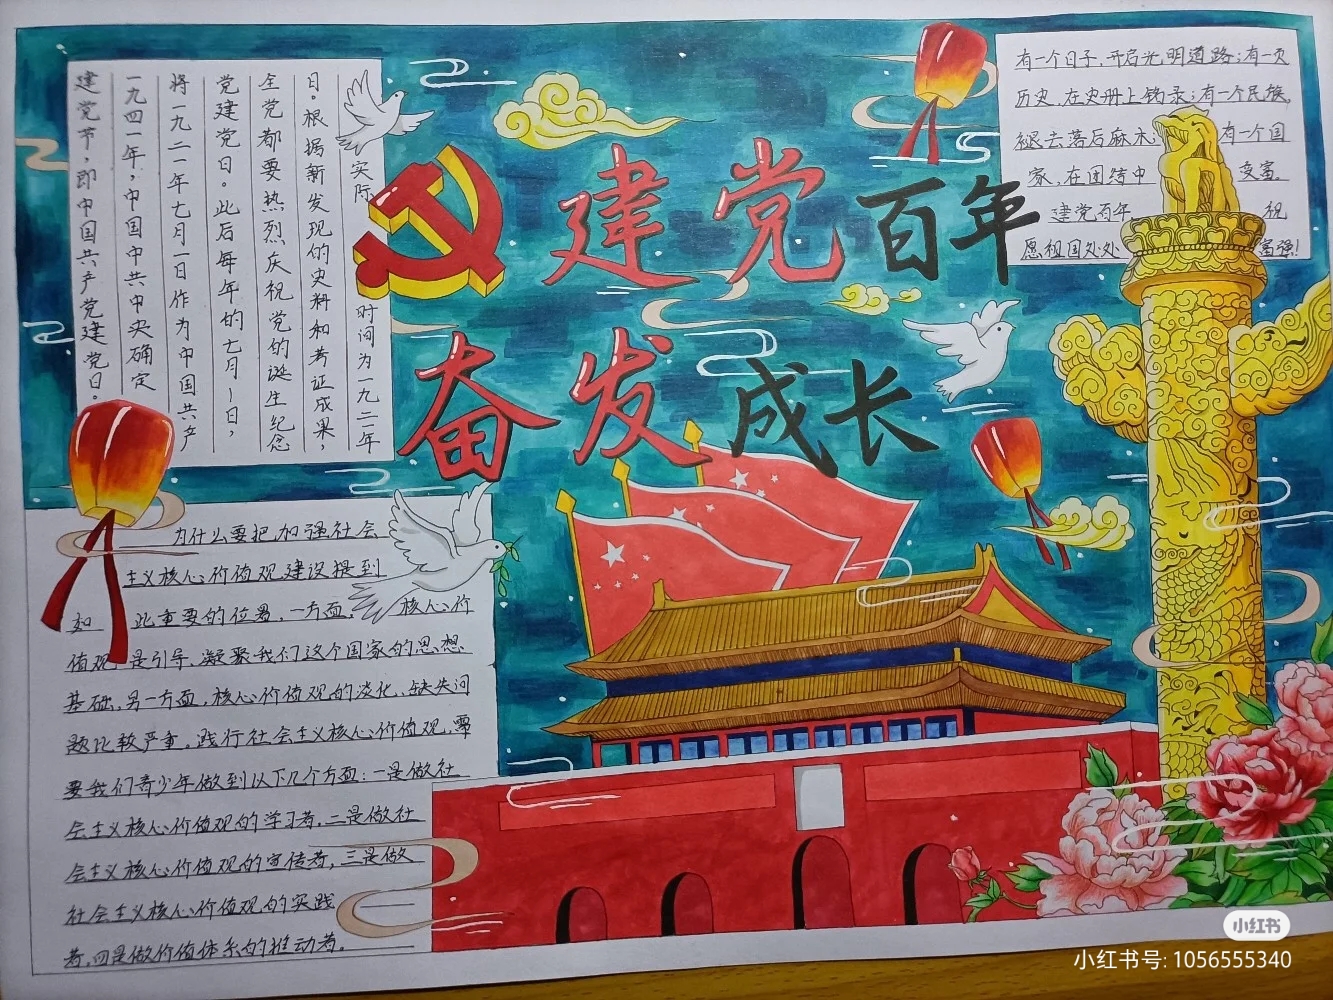 建党百年
奋发成长
建党节，即中国共产党建党日。
一九四一年，中国中共中央确定
将一九二一年七月一日作为中国共产
党建党日。此后每年的七月一日，
全党都要热烈庆祝党的诞生纪念
日。根据新发现的史料和考证成果，
实际 时间为一九二一年
有一个日子，开启光明道路；有一页
历史，在史册上铭录；有一个民族，
褪去落后麻木；有一个国
家，在团结中 变富。
建党百年， 祝
愿祖国处处 富强！
为什么要把加强社会
主义核心价值观建设提到
如 此重要的位置，一方面， 核心价
值观 是引导、凝聚我们这个国家的思想
基础，另一方面，核心价值观的淡化、缺失问
题比较严重。践行社会主义核心价值观，需
要我们青少年做到以下几个方面：一是做社
会主义核心价值观的学习者，二是做社
会主义核心价值观的宣传者，三是做
社会主义核心价值观的实践
者，四是做价值体系的推动者。
小红书
小红书号: 1056555340